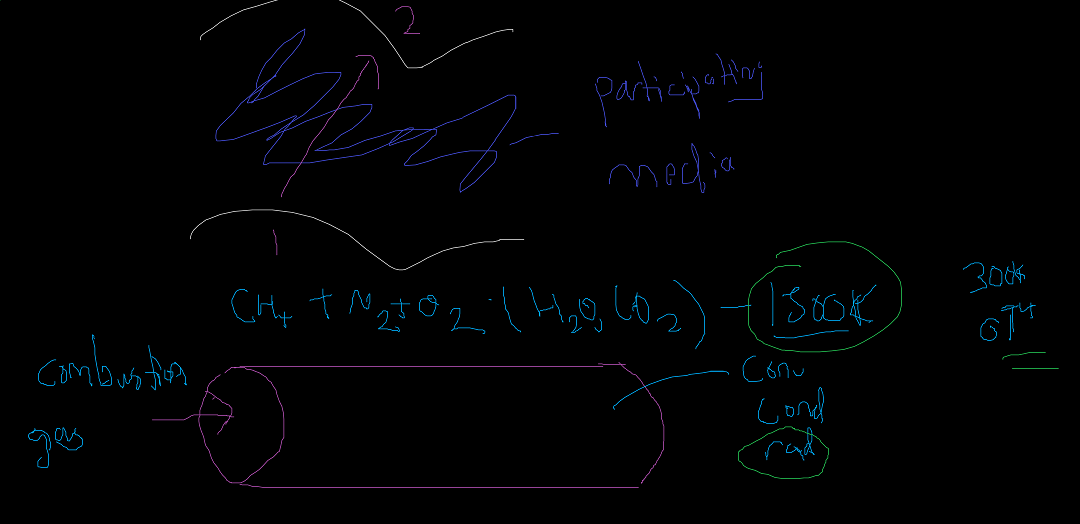 2
participating
media
1
CH4 + N2 + O2 · (H2O, CO2) — 1500K
300K
σT^4
Combustion
gas
Conv
Cond
rad